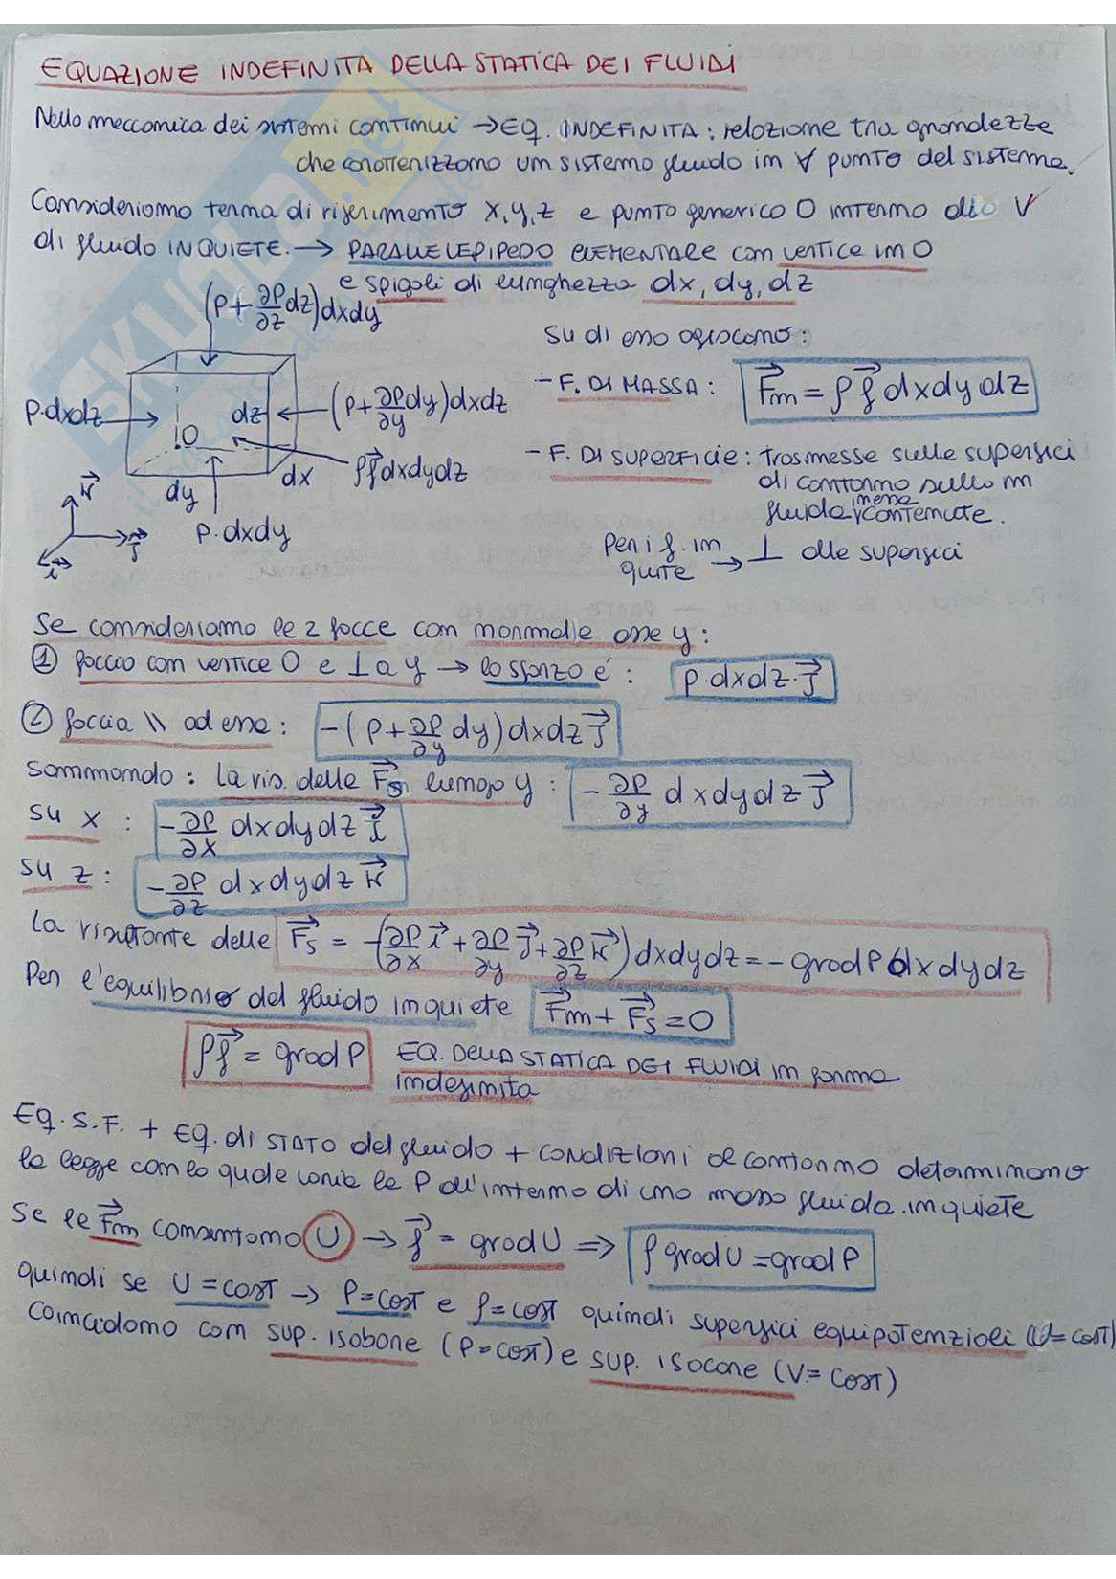 EQUAZIONE INDEFINITA DELLA STATICA DEI FLUIDI
Nella meccanica dei sistemi continui → EQ. INDEFINITA : relazione tra grandezze
che caratterizzano un sistema fluido in ∀ punto del sistema.
Consideriamo terna di riferimento x, y, z e punto generico O interno allo V
di fluido IN QUIETE. → PARALLELEPIPEDO ELEMENTARE con vertice in O
e spigoli di lunghezza dx, dy, dz
(p + ∂p/∂z dz) dxdy
su di esso agiscono :
- F. DI MASSA : F⃗m = ρ f⃗ dx dy dz
p·dxdz
dz
(p + ∂p/∂y dy) dxdz
O
- F. DI SUPERFICIE : trasmesse sulle superfici
di contorno sulla m
massa
fluida contenute.
dx
ρf⃗ dxdydz
dy
k⃗
j⃗
i⃗
p·dxdy
Per i f. in
quiete → ⊥ alle superfici
Se consideriamo le 2 facce con normale asse y :
① faccia con vertice O e ⊥ a y → lo sforzo è : p dxdz·j⃗
② faccia \\ ad essa : -(p + ∂p/∂y dy) dxdz j⃗
sommando : la ris. delle F⃗s lungo y : -∂p/∂y dxdydz j⃗
su x : -∂p/∂x dxdydz i⃗
su z : -∂p/∂z dxdydz k⃗
La risultante delle F⃗s = -(∂p/∂x i⃗ + ∂p/∂y j⃗ + ∂p/∂z k⃗) dxdydz = - grad P dxdydz
Per l'equilibrio del fluido in quiete F⃗m + F⃗s = 0
ρf⃗ = grad P EQ. DELLA STATICA DEI FLUIDI in forma
indefinita
EQ. S.F. + EQ. di STATO del fluido + CONDIZIONI al contorno determinano
la legge con la quale varia la P all'interno di una massa fluida in quiete
Se le F⃗m consentono U → f⃗ = grad U ⇒ ρ grad U = grad P
quindi se U = cost → P = cost e ρ = cost quindi superfici equipotenziali (U = cost)
coincidono con sup. isobare (P = cost) e sup. isocore (V = cost)